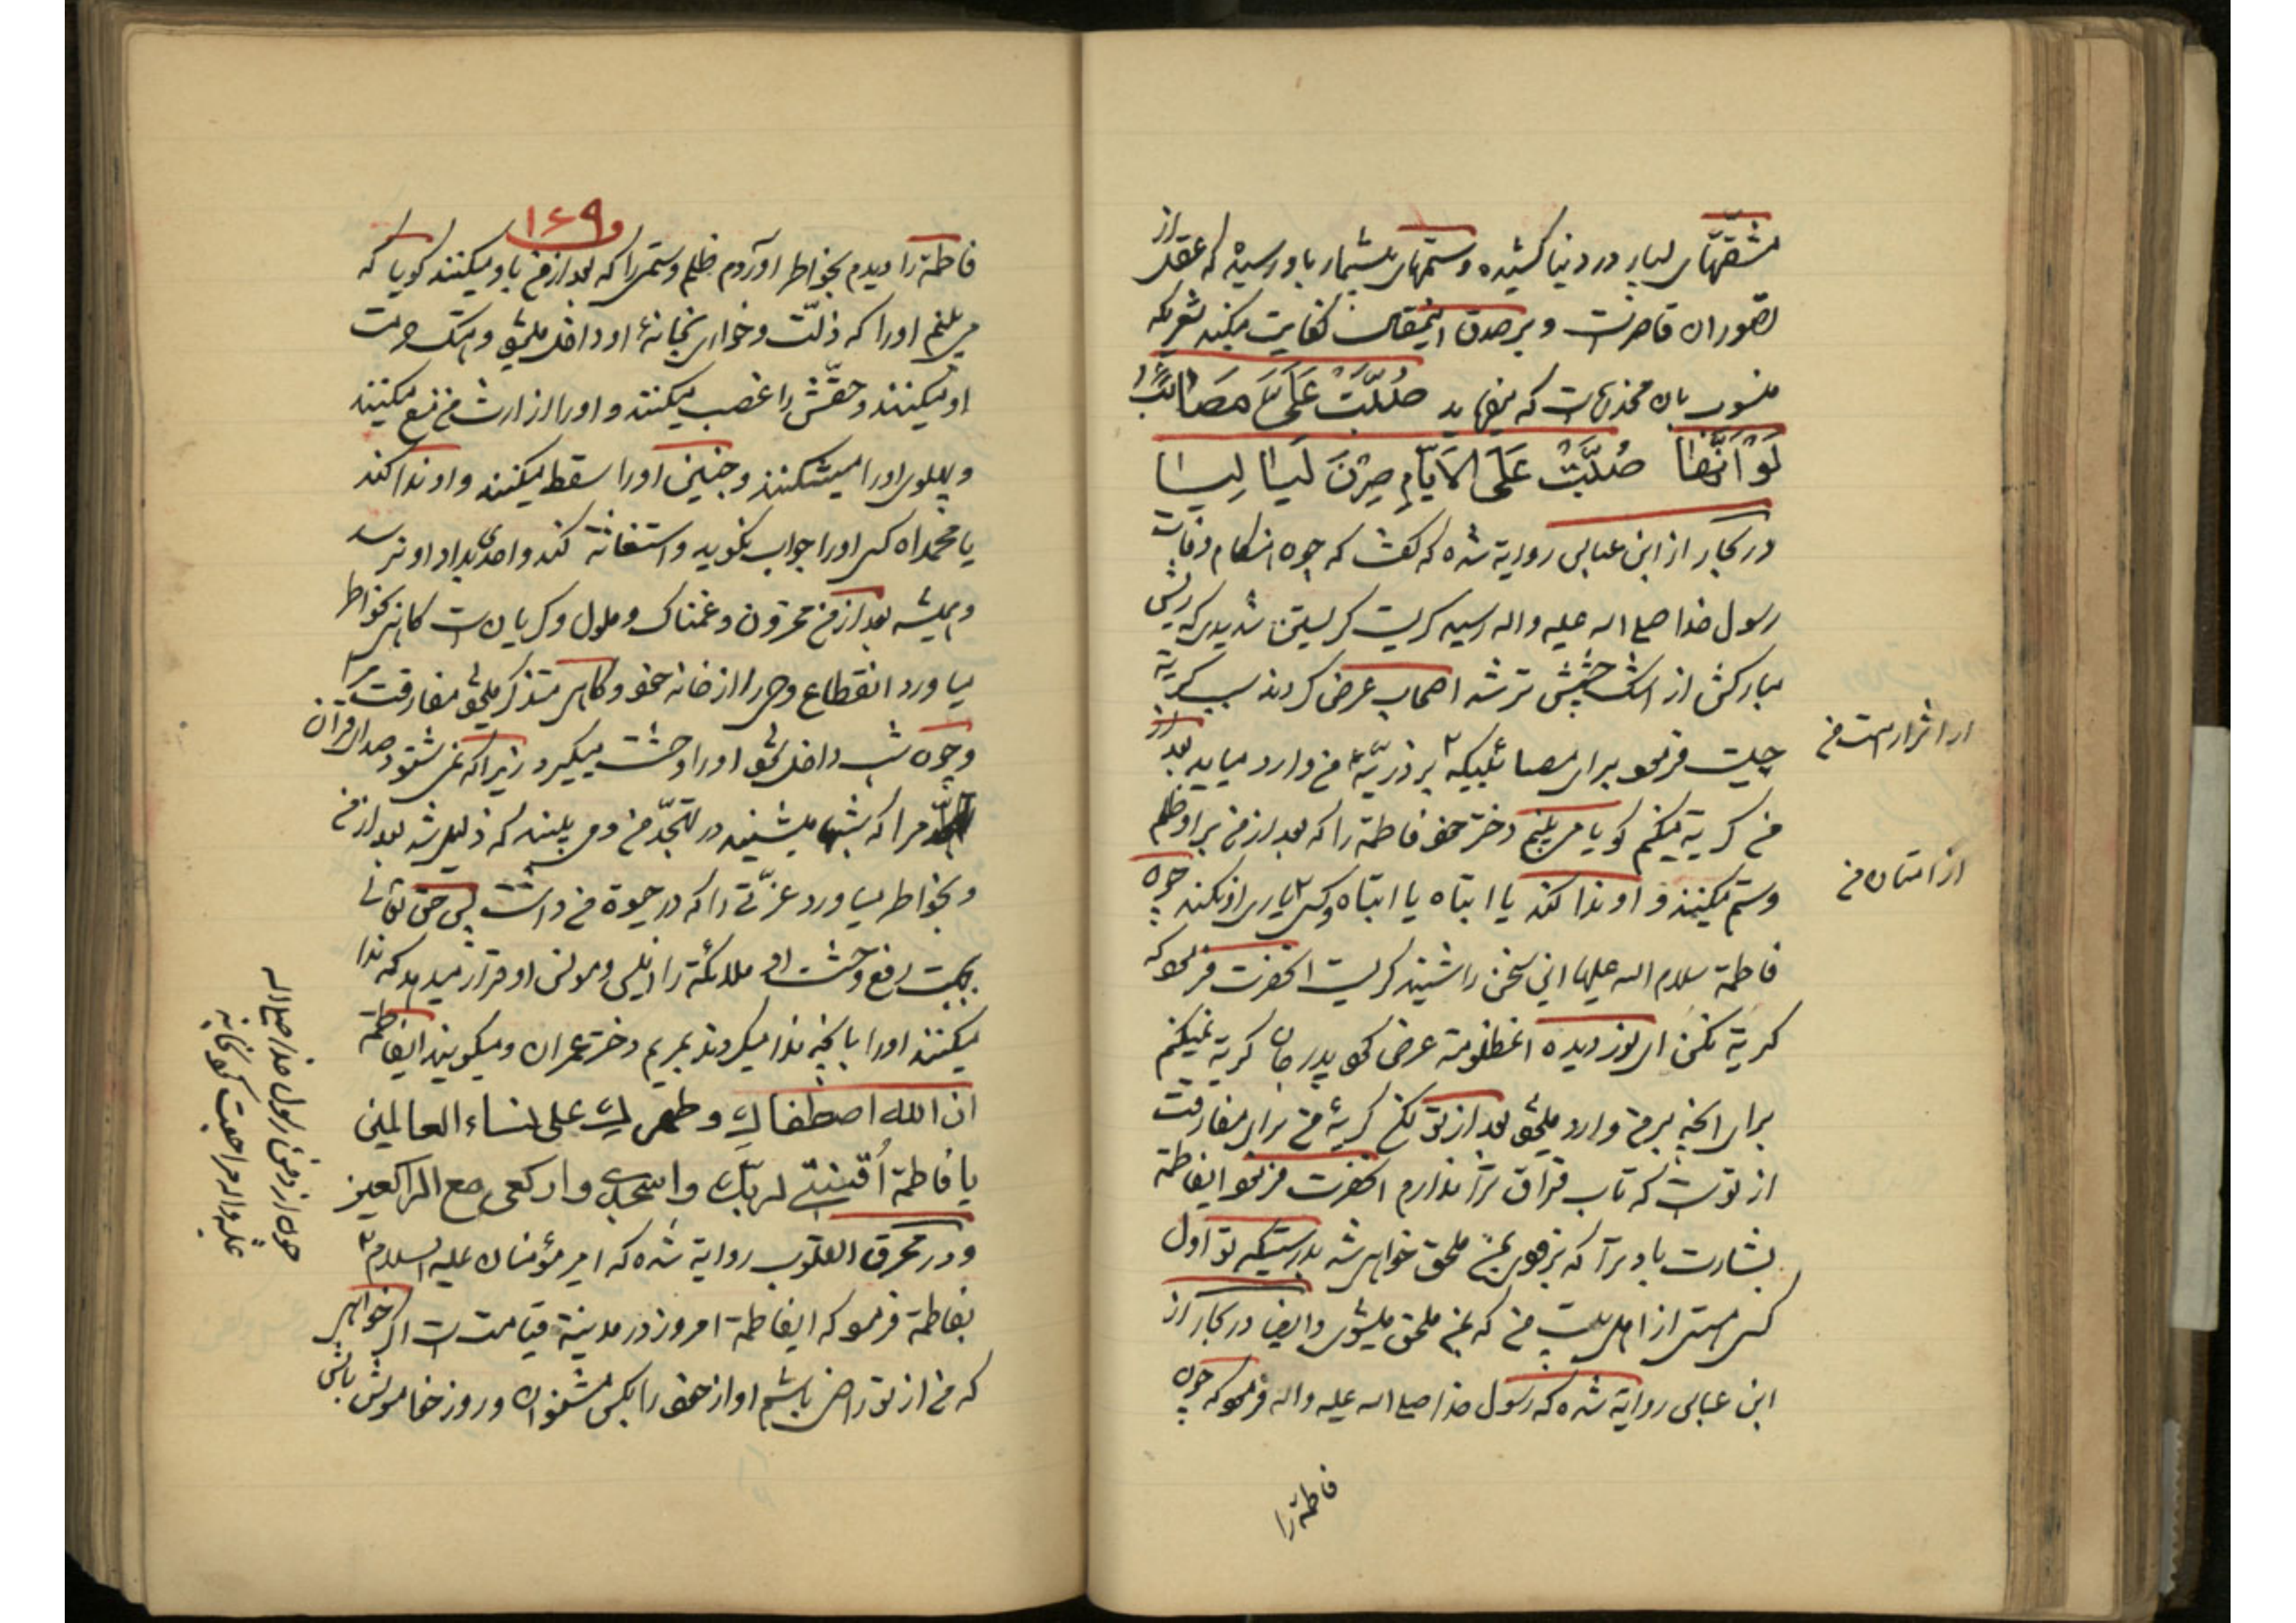 مشقتهای بسیار در دنیا کشیده و ستمهای بیشمار باو رسیده که عقل از
تصور ان قاصرست و بر صدق اینمقال کفایت میکند شعریکه
منسوب بان مخدره است که میفرماید صُبَّتْ عَلَیَّ مَصَائِبٌ
لَوْ اَنَّهَا صُبَّتْ عَلَی الاَیّامِ صِرْنَ لَیَالِیَا
در بحار از ابن عباس روایة شده که گفت که چون هنکام وفات
رسول خدا صلی اله علیه و اله رسید کریست کریستن شدیدی که ریش
مبارکش از اشک چشمش تر شد اصحاب عرض کردند سبب کریة
چیست فرمود برای مصائبیکه بر ذریّهٔ من وارد میاید بعد از
از اشرار امت من
من کریة میکنم کویا می بینم دختر خود فاطمة را که بعد از من بر او ظلم
و ستم میکنند و او ندا کند یا ابتاه یا ابتاه و کسی یاری او نکند چون
از امتان من
فاطمة سلام اله علیها این سخن را شنید کریست انحضرت فرمود که
کریة مکن ای نور دیده مظلومه عرض کرد پدر جان کریة نمیکنم
برای انچه بر من وارد میشود بعد از تو لکن کریهٔ من برای مفارقت
از توست که تاب فراق ترا ندارم انحضرت فرمود ایفاطمة
بشارت باد ترا که بزودی بمن ملحق خواهی شد بدرستیکه تو اول
کسی هستی از اهل بیت من که بمن ملحق میشوی و ایضا در بحار از
ابن عباس روایة شده که رسول خدا صلی اله علیه و اله فرمود که چون
فاطمة را
۱۶۹
فاطمة را دیدم بخواطر اوردم ظلم و ستمی را که بعد از من باو میکنند کویا که
می بینم او را که ذلّت و خواری بخانهٔ او داخل میشود و هتک حرمت
او میکنند و حقّش را غصب میکنند و او را از ارث من منع میکنند
و پهلوی او را میشکنند و جنین او را سقط میکنند و او ندا کند
یا محمداه کسی او را جواب نکوید و استغاثة کند و احدی بداد او نرسد
و همیشه بعد از من محزون و غمناک و ملول و کریان است کاهی بخواطر
میاورد انقطاع وحی را از خانه خود و کاهی متذکر میشود مفارقت مرا
و چون شب داخل شود او را وحشت میکیرد زیرا که نمی شنود صدای قران
مرا که شبها میشنید در تهجّد من و می بیند که ذلیل شد بعد از من
و بخواطر میاورد عزّتی را که در حیوة من داشت پس حق تعالی
بجهت رفع وحشت او ملائکة را انیس و مونس او قرار میدهد که ندا
میکنند او را بانچه ندا میکردند بمریم دختر عمران و میکویند ایفاطمة
ان الله اصطفاك و طهرك علی نساء العالمین
یا فاطمة اُقنتی لربك و اسجدی و ارکعی مع الراکعین
و در محرق القلوب روایة شده که امیر مؤمنان علیه السلام
بفاطمة فرمود که ایفاطمة امروز در مدینة قیامت است اکر خواهی
که من از تو راضی باشم اواز خود را بکس مشنوان و روز خاموش باش
چون از دفن رسول خدا صلی اله
علیه و اله مراجعت کرد بخانه